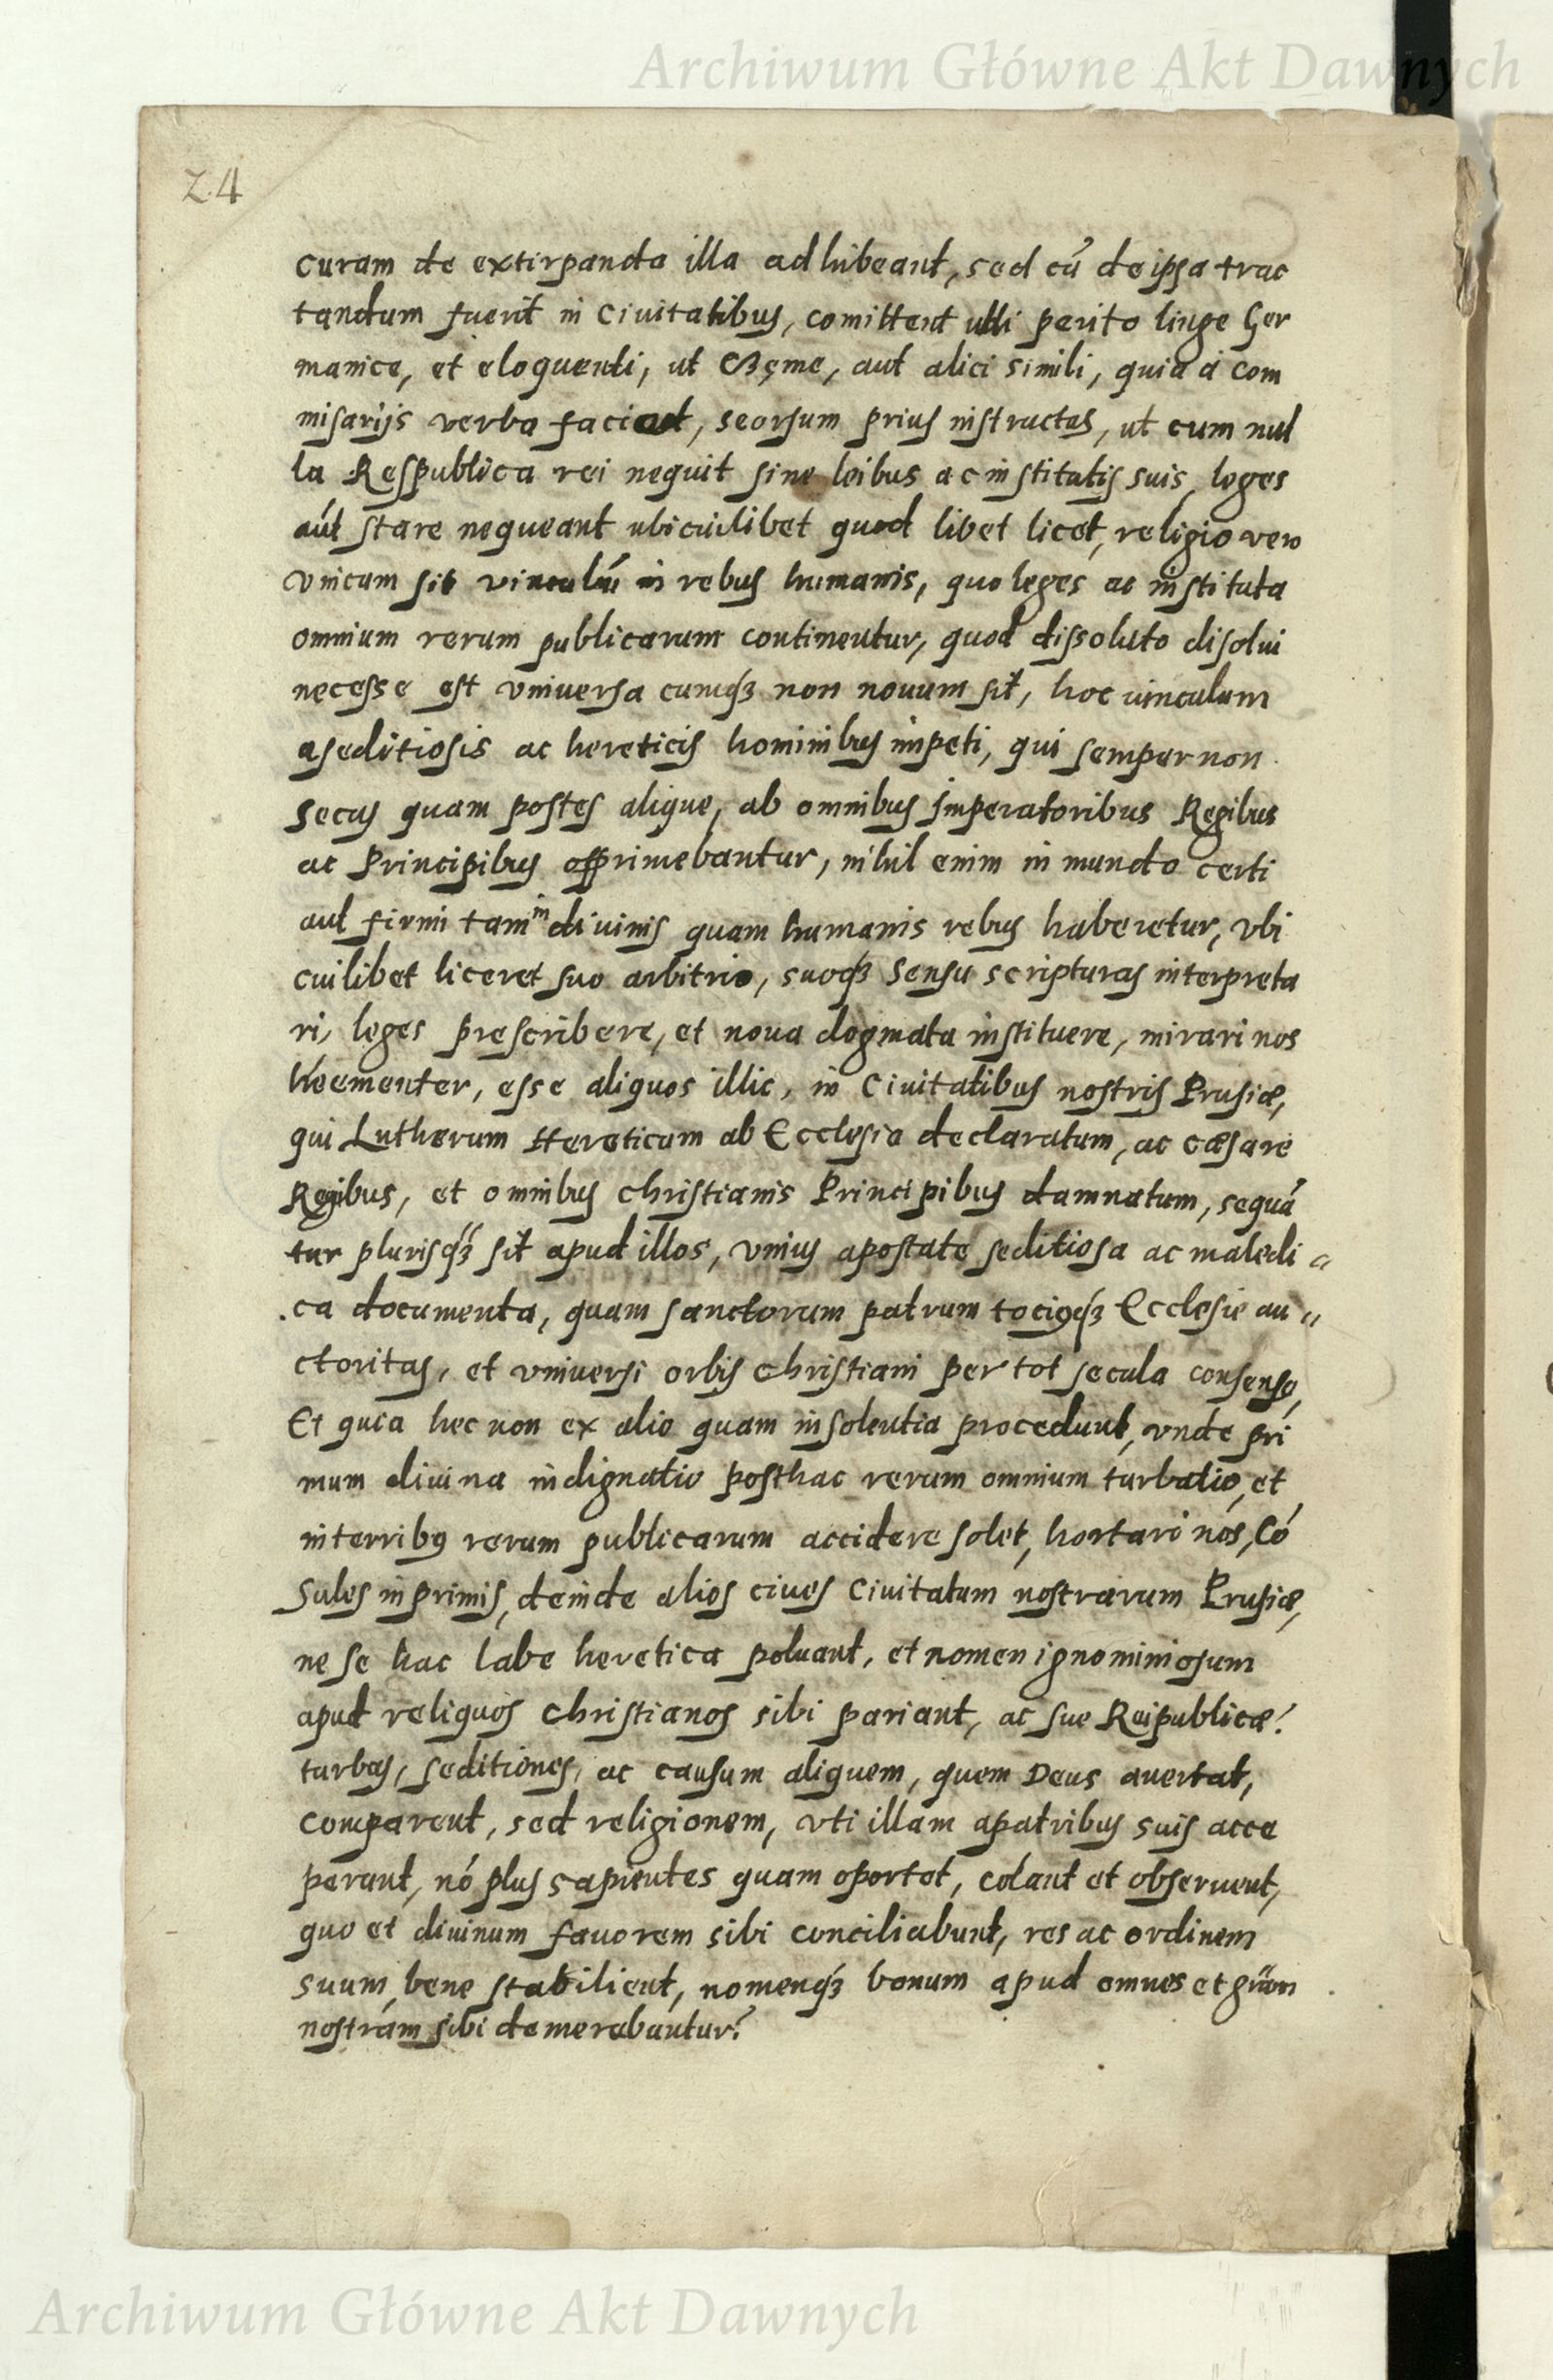 Archiwum Główne Akt Dawnych
24
curam de extirpanda illa adhibeant, sed cū de ipsa trac
tandum fuerit in Civitatibus, comittent ulli perito linge Ger
manice, et eloquenti, ut aut alici simili, qui a com
misarijs verba faciat, seorsum prius instructus, ut cum nul
la Respublica rei nequit sine leibus ac institutis suis, leges
aūt stare nequeant ubi cuilibet quod libet licet, religio vero
vnicum sit vinculū in rebus humanis, quo leges ac instituta
omnium rerum publicarum continentur, quod dissoluto disolui
necesse est vniversa cumqʒ non nouum sit, hoc vinculum
a seditiosis ac hereticis hominibus impeti, qui semper non
secus quam postes alique, ab omnibus Imperatoribus Regibus
ac Principibus opprimebantur, nihil enim in mundo certi
aut firmi tam in divinis quam humanis rebus haberetur, vbi
cuilibet liceret suo arbitrio, suoqʒ sensu scripturas interpreta
ri, leges prescribere, et noua dogmata instituere, mirari nos
veementer, esse aliquos illic, in Civitatibus nostris Prusiæ,
qui Lutherum Hereticum ab Ecclesia declaratum, ac cæsare
Regibus, et omnibus christianis Principibus damnatum, sequā
tur plurisqʒ sit apud illos, vnius apostate seditiosa ac maledi
ca documenta, quam sanctorum patrum tociꝰqʒ Ecclesie au
ctoritas, et vniuersi orbis christiani per tot secula consenso,
Et quia hec non ex alio quam insolentia procedunt, vnde pri
mum diuina indignatio posthac rerum omnium turbatio, et
interribꝰ rerum publicarum accidere solet, hortari nos, Cō
sules in primis, deinde alios ciues Civitatum nostrarum Prusiæ,
ne se hac labe heretica poluant, et nomen ignominiosum
apud reliquos christianos sibi pariant, ac sue Reipublicæ
turbas, seditiones, ac causum aliquem, quem Deus avertat,
comparent, sed religionem, vti illam a patribus suis acce
perant, nō plus sapientes quam oportet, colant et observent,
quo et diuinum fauorem sibi conciliabunt, res ac ordinem
suum, bene stabilient, nomenqʒ bonum apud omnes et gr̄am
nostram sibi demerebantur.
Archiwum Główne Akt Dawnych